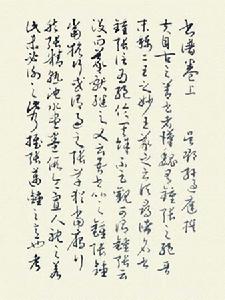 書譜卷上 吳郡孫過庭撰
夫自古之善書者漢魏有鍾張之絕晉
末稱二王之妙王羲之云頃尋諸名書
鍾張信為絕倫其餘不足觀可謂鍾張云
沒而羲獻繼之又云吾書比之鍾張鍾
當抗行或謂過之張草猶當鴈行
然張精熟池水盡墨假令寡人耽之若
此未必謝之此乃推張邁鍾之意也考